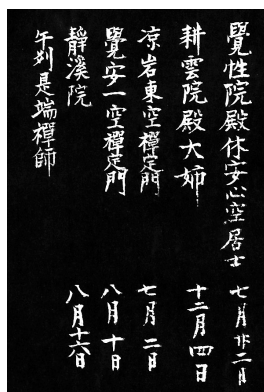 覺性院殿休安心空居士 七月廿二日
耕雲院殿大姉 十二月四日
凉岩東空禪定門 七月二日
覺安一空禪定門 八月十日
靜溪院 八月十六日
午刻是端禪師